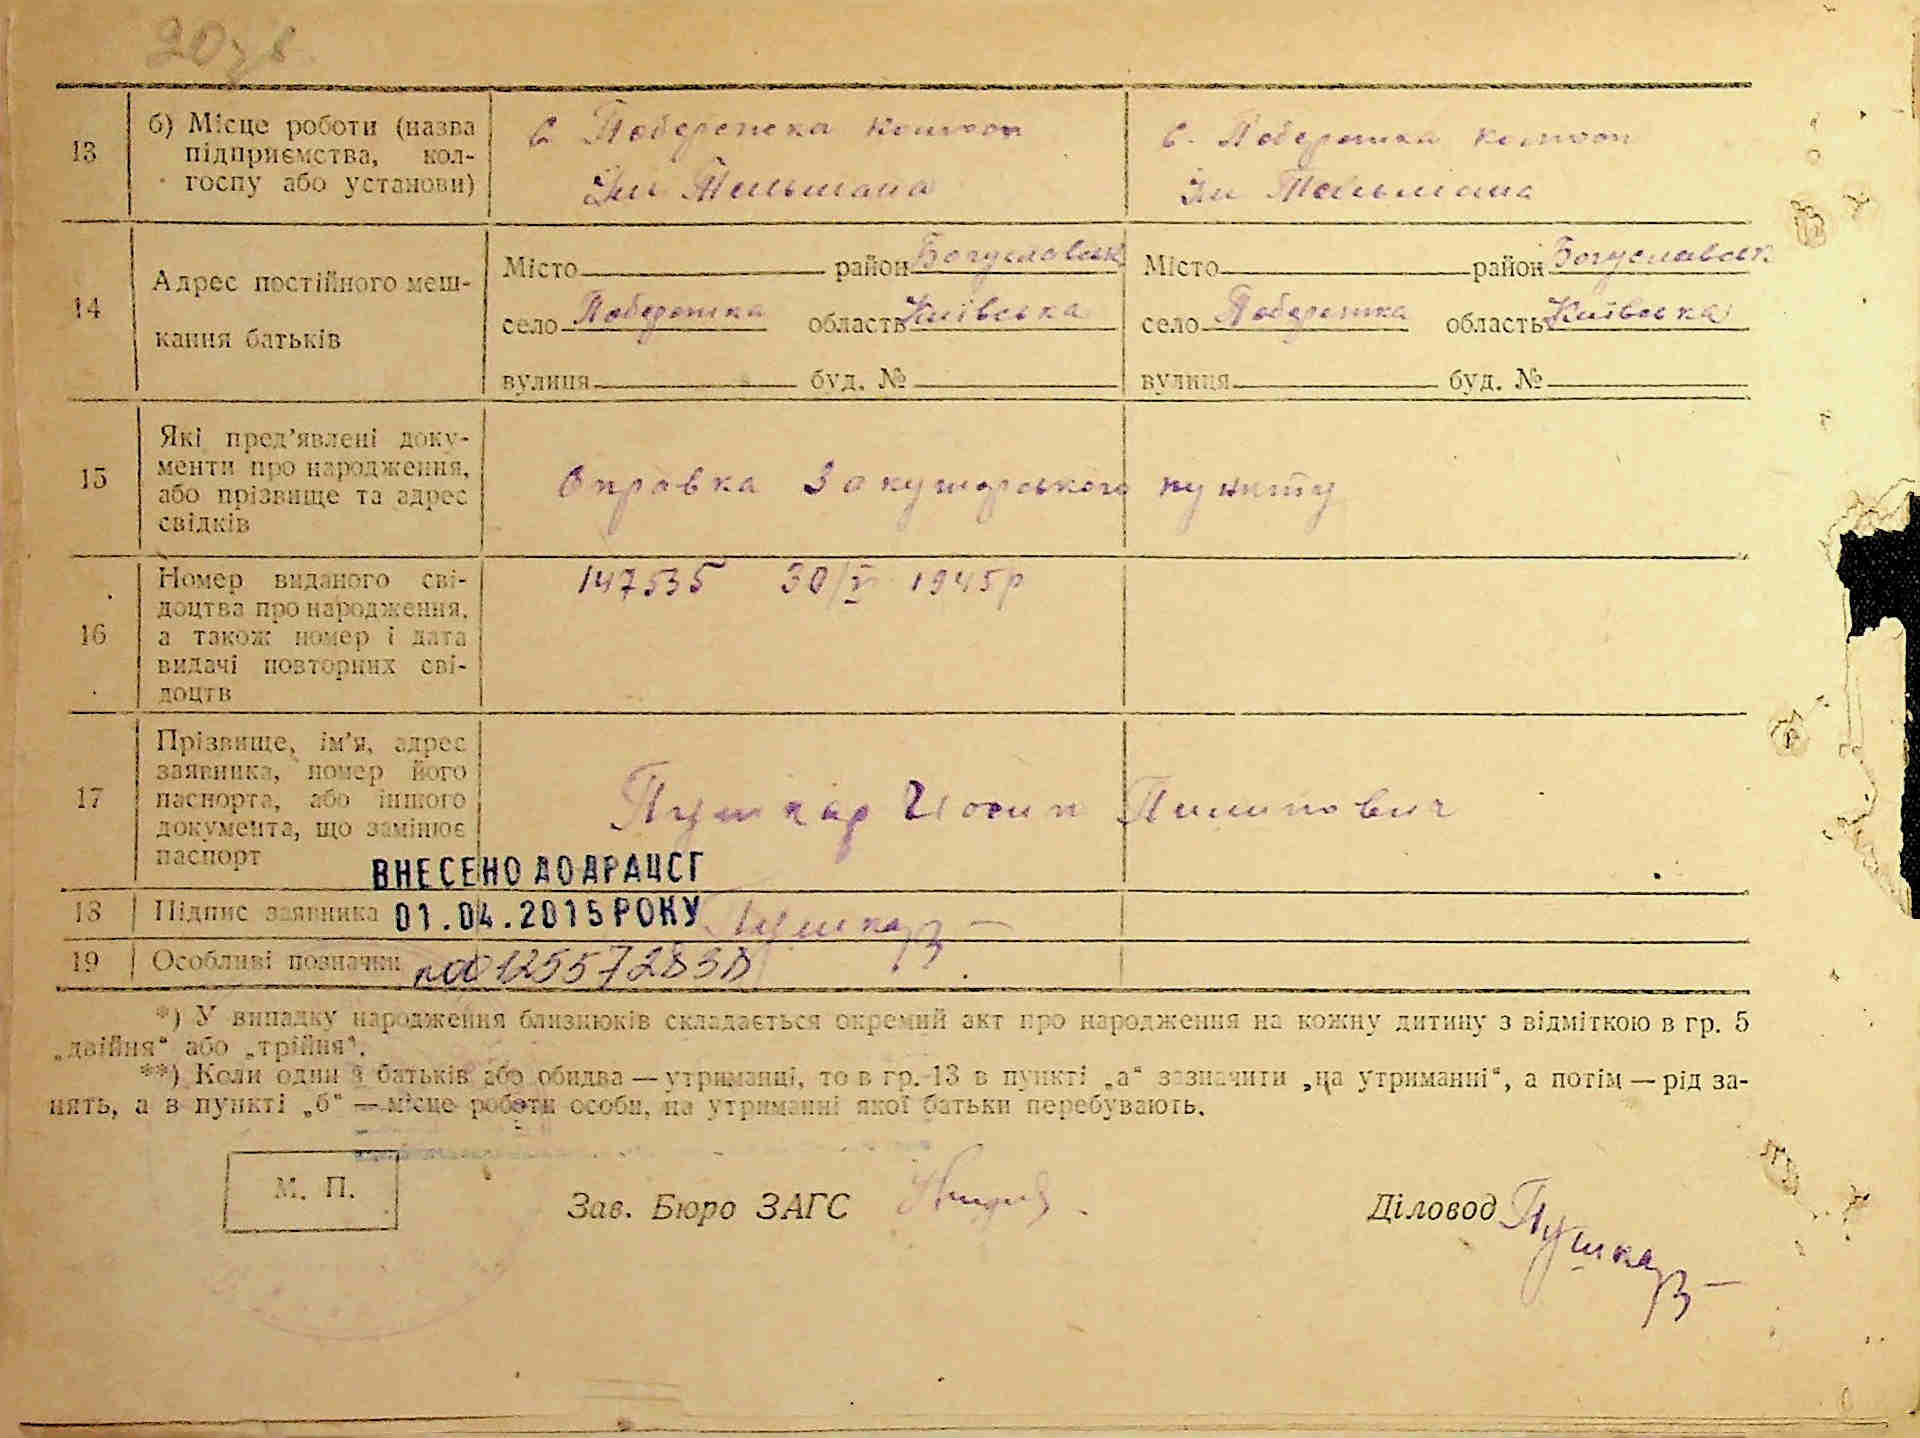 13
б) Місце роботи (назва
підприємства, кол-
госпу або установи)
с. Поберешка колгосп
Ім Тельмана
с. Поберешка колгосп
Ім Тельмана
14
Адрес постійного меш-
кання батьків
Місто район Богуславськ
село Поберешка область Київська
вулиця буд. №
Місто район Богуславськ
село Поберешка область Київська
вулиця буд. №
15
Які пред’явлені доку-
менти про народження,
або прізвище та адрес
свідків
Справка З акушорського пункту
16
Номер виданого сві-
доцтва про народження,
а також номер і дата
видачі повторних сві-
доцтв
147535 30/V 1945р
17
Прізвище, ім’я, адрес
заявника, номер його
паспорта, або іншого
документа, що замінює
паспорт
Пушкар Иосип Пилипович
ВНЕСЕНО ДО ДРАЦСГ
01.04.2015 РОКУ
18
Підпис заявника
Пушкар
19
Особливі позначки
*) У випадку народження близнюків складається окремий акт про народження на кожну дитину з відміткою в гр. 5
„двійня“ або „трійня“.
**) Коли один з батьків або обидва — утриманці, то в гр. 13 в пункті „а“ зазначити „на утриманні“, а потім — рід за-
нять, а в пункті „б“ — місце роботи особи, на утриманні якої батьки перебувають.
М. П.
Зав. Бюро ЗАГС
Діловод Пушкар